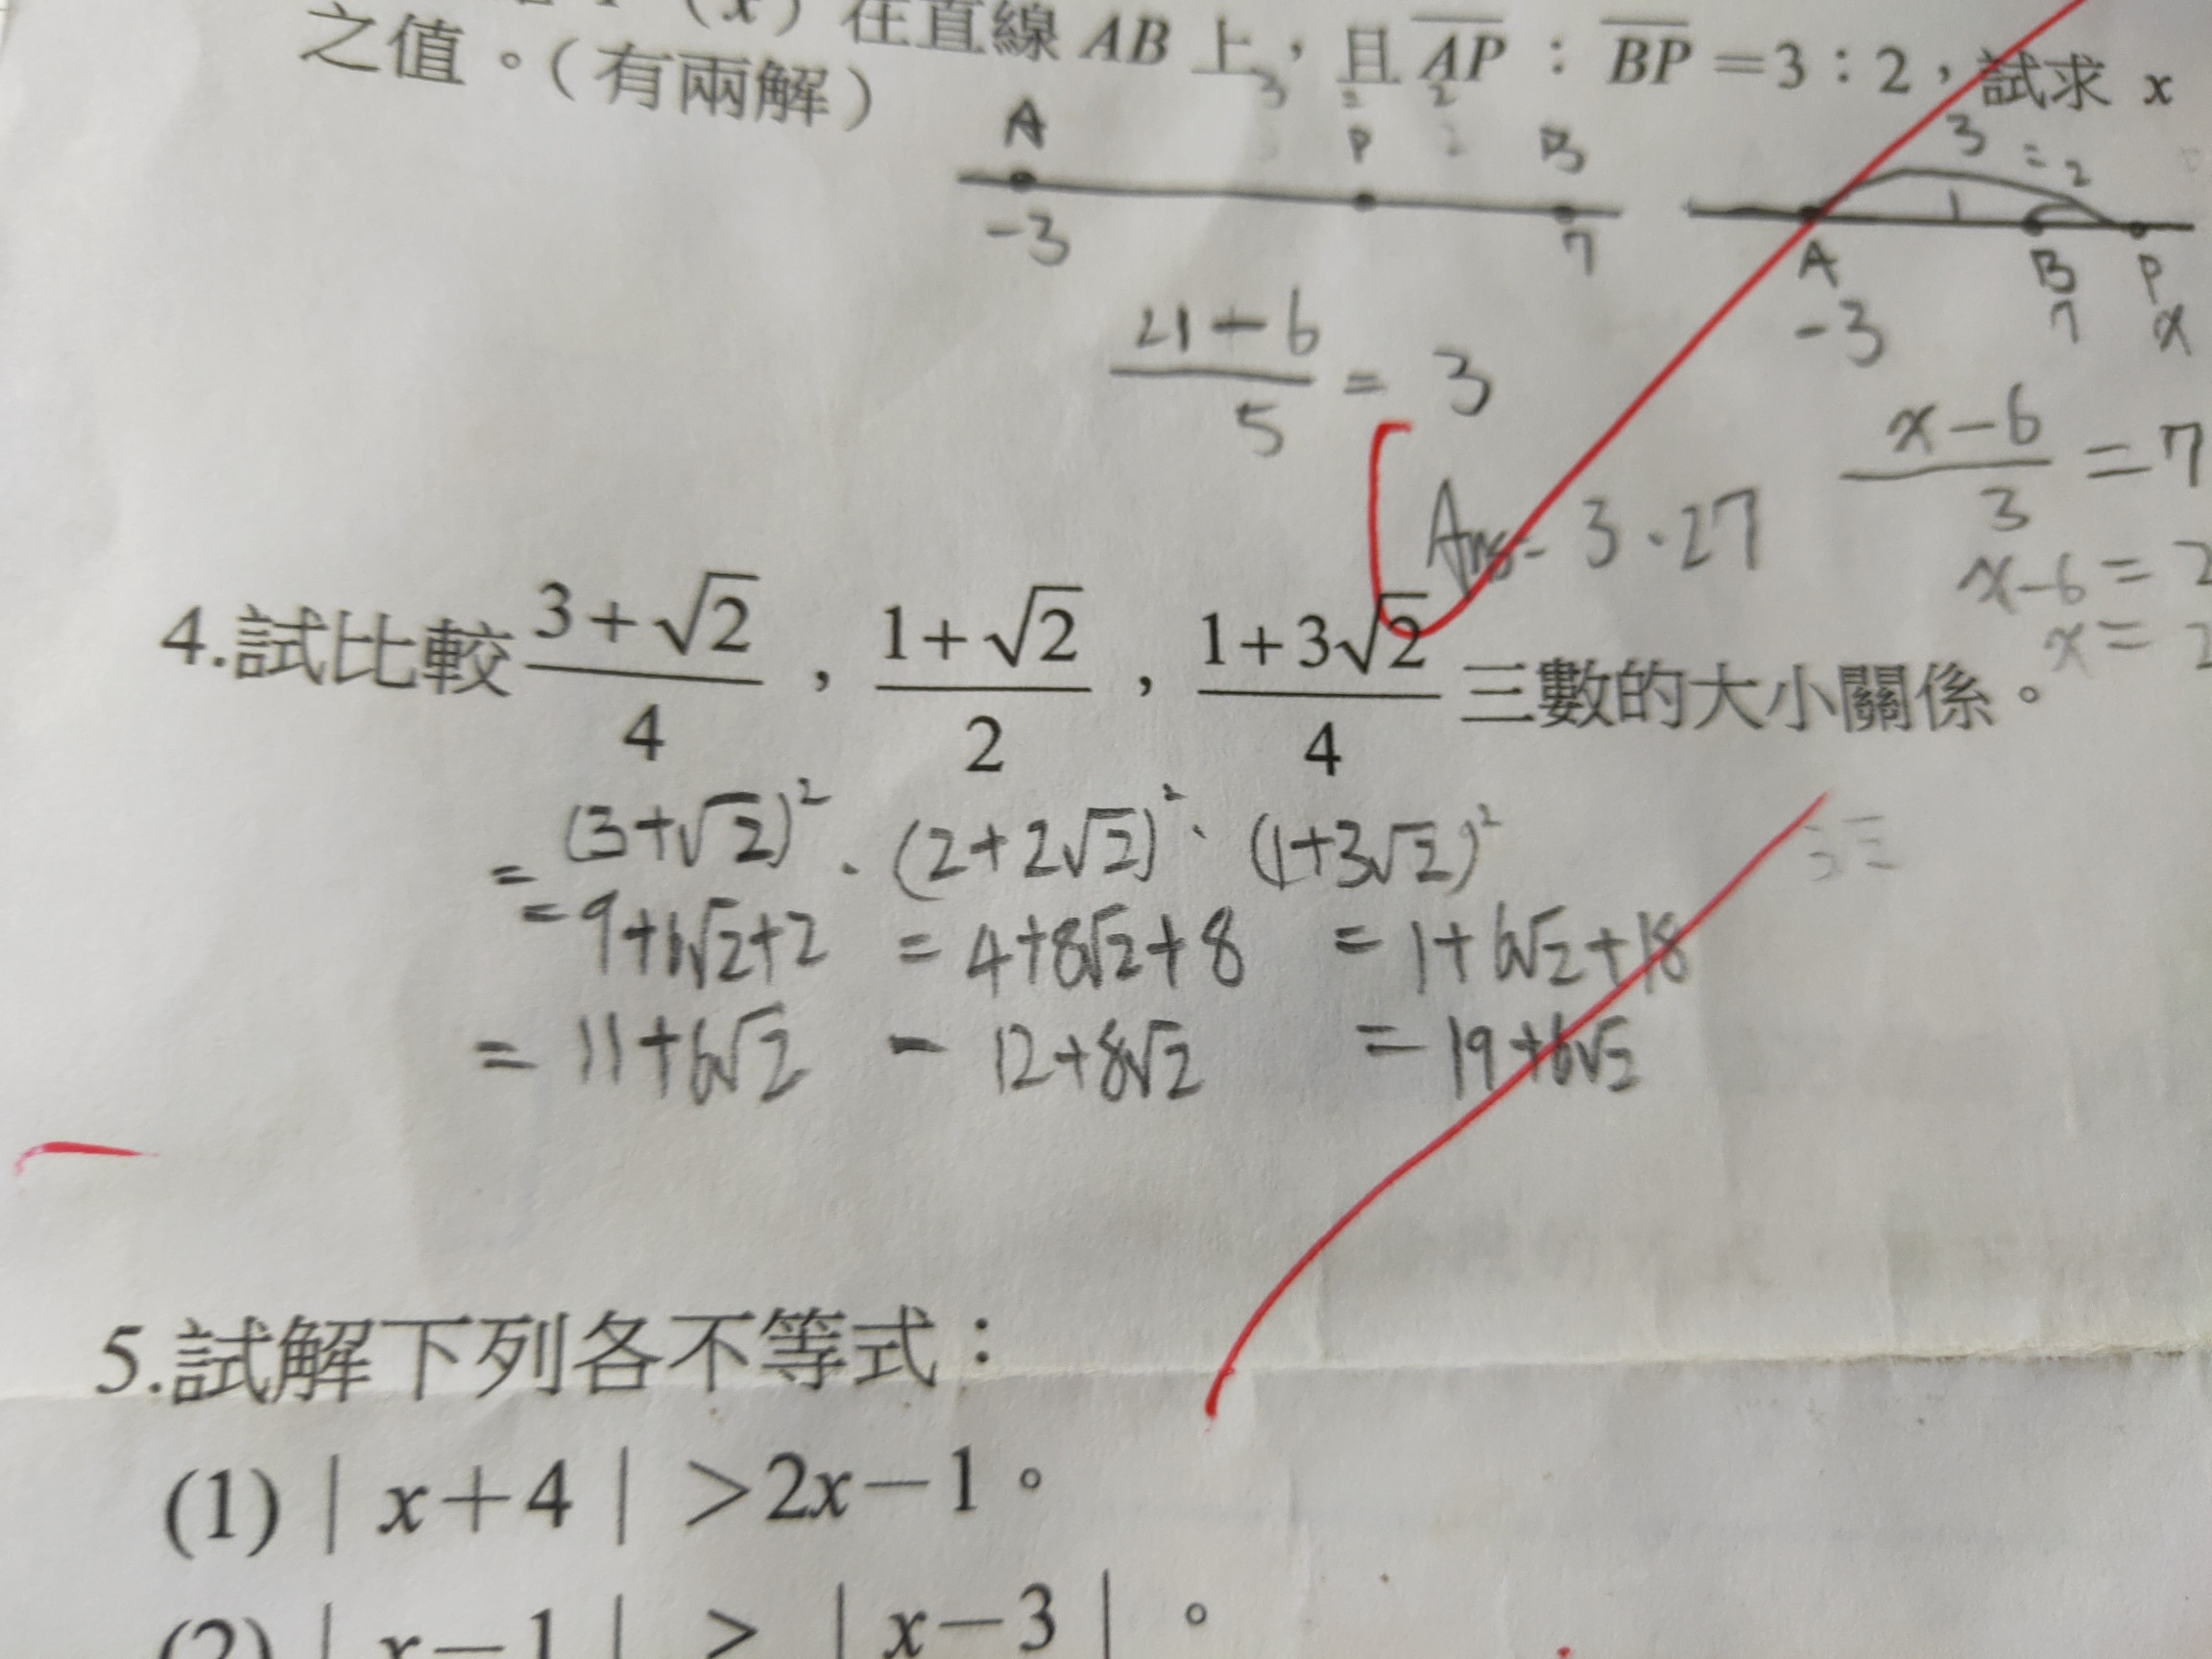 (x) 在直線 AB 上，且 AP : BP =3：2，試求 x
之值。(有兩解)
3 = 2
A P B
-3 7
3 = 2
1
A B P
-3 7 x
21-6/5 = 3
x-6/3 = 7
Ans = 3.27
x-6 = 2
x = 2
4.試比較 3+√2/4，1+√2/2，1+3√2/4 三數的大小關係。
= (3+√2)² · (2+2√2)² · (1+3√2)²
= 9+6√2+2 = 4+8√2+8 = 1+6√2+18
= 11+6√2 - 12+8√2 = 19+6√2
5.試解下列各不等式：
(1)｜x+4｜>2x-1。
(2)｜x-1｜>｜x-3｜。